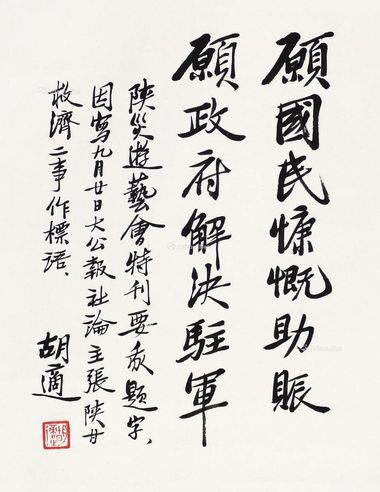 願國民慷慨助賑
願政府解決駐軍
陝災遊藝會特刊要我題字、
因寫九月廿日大公報社論主張陝甘
救濟二事作標語、
胡適